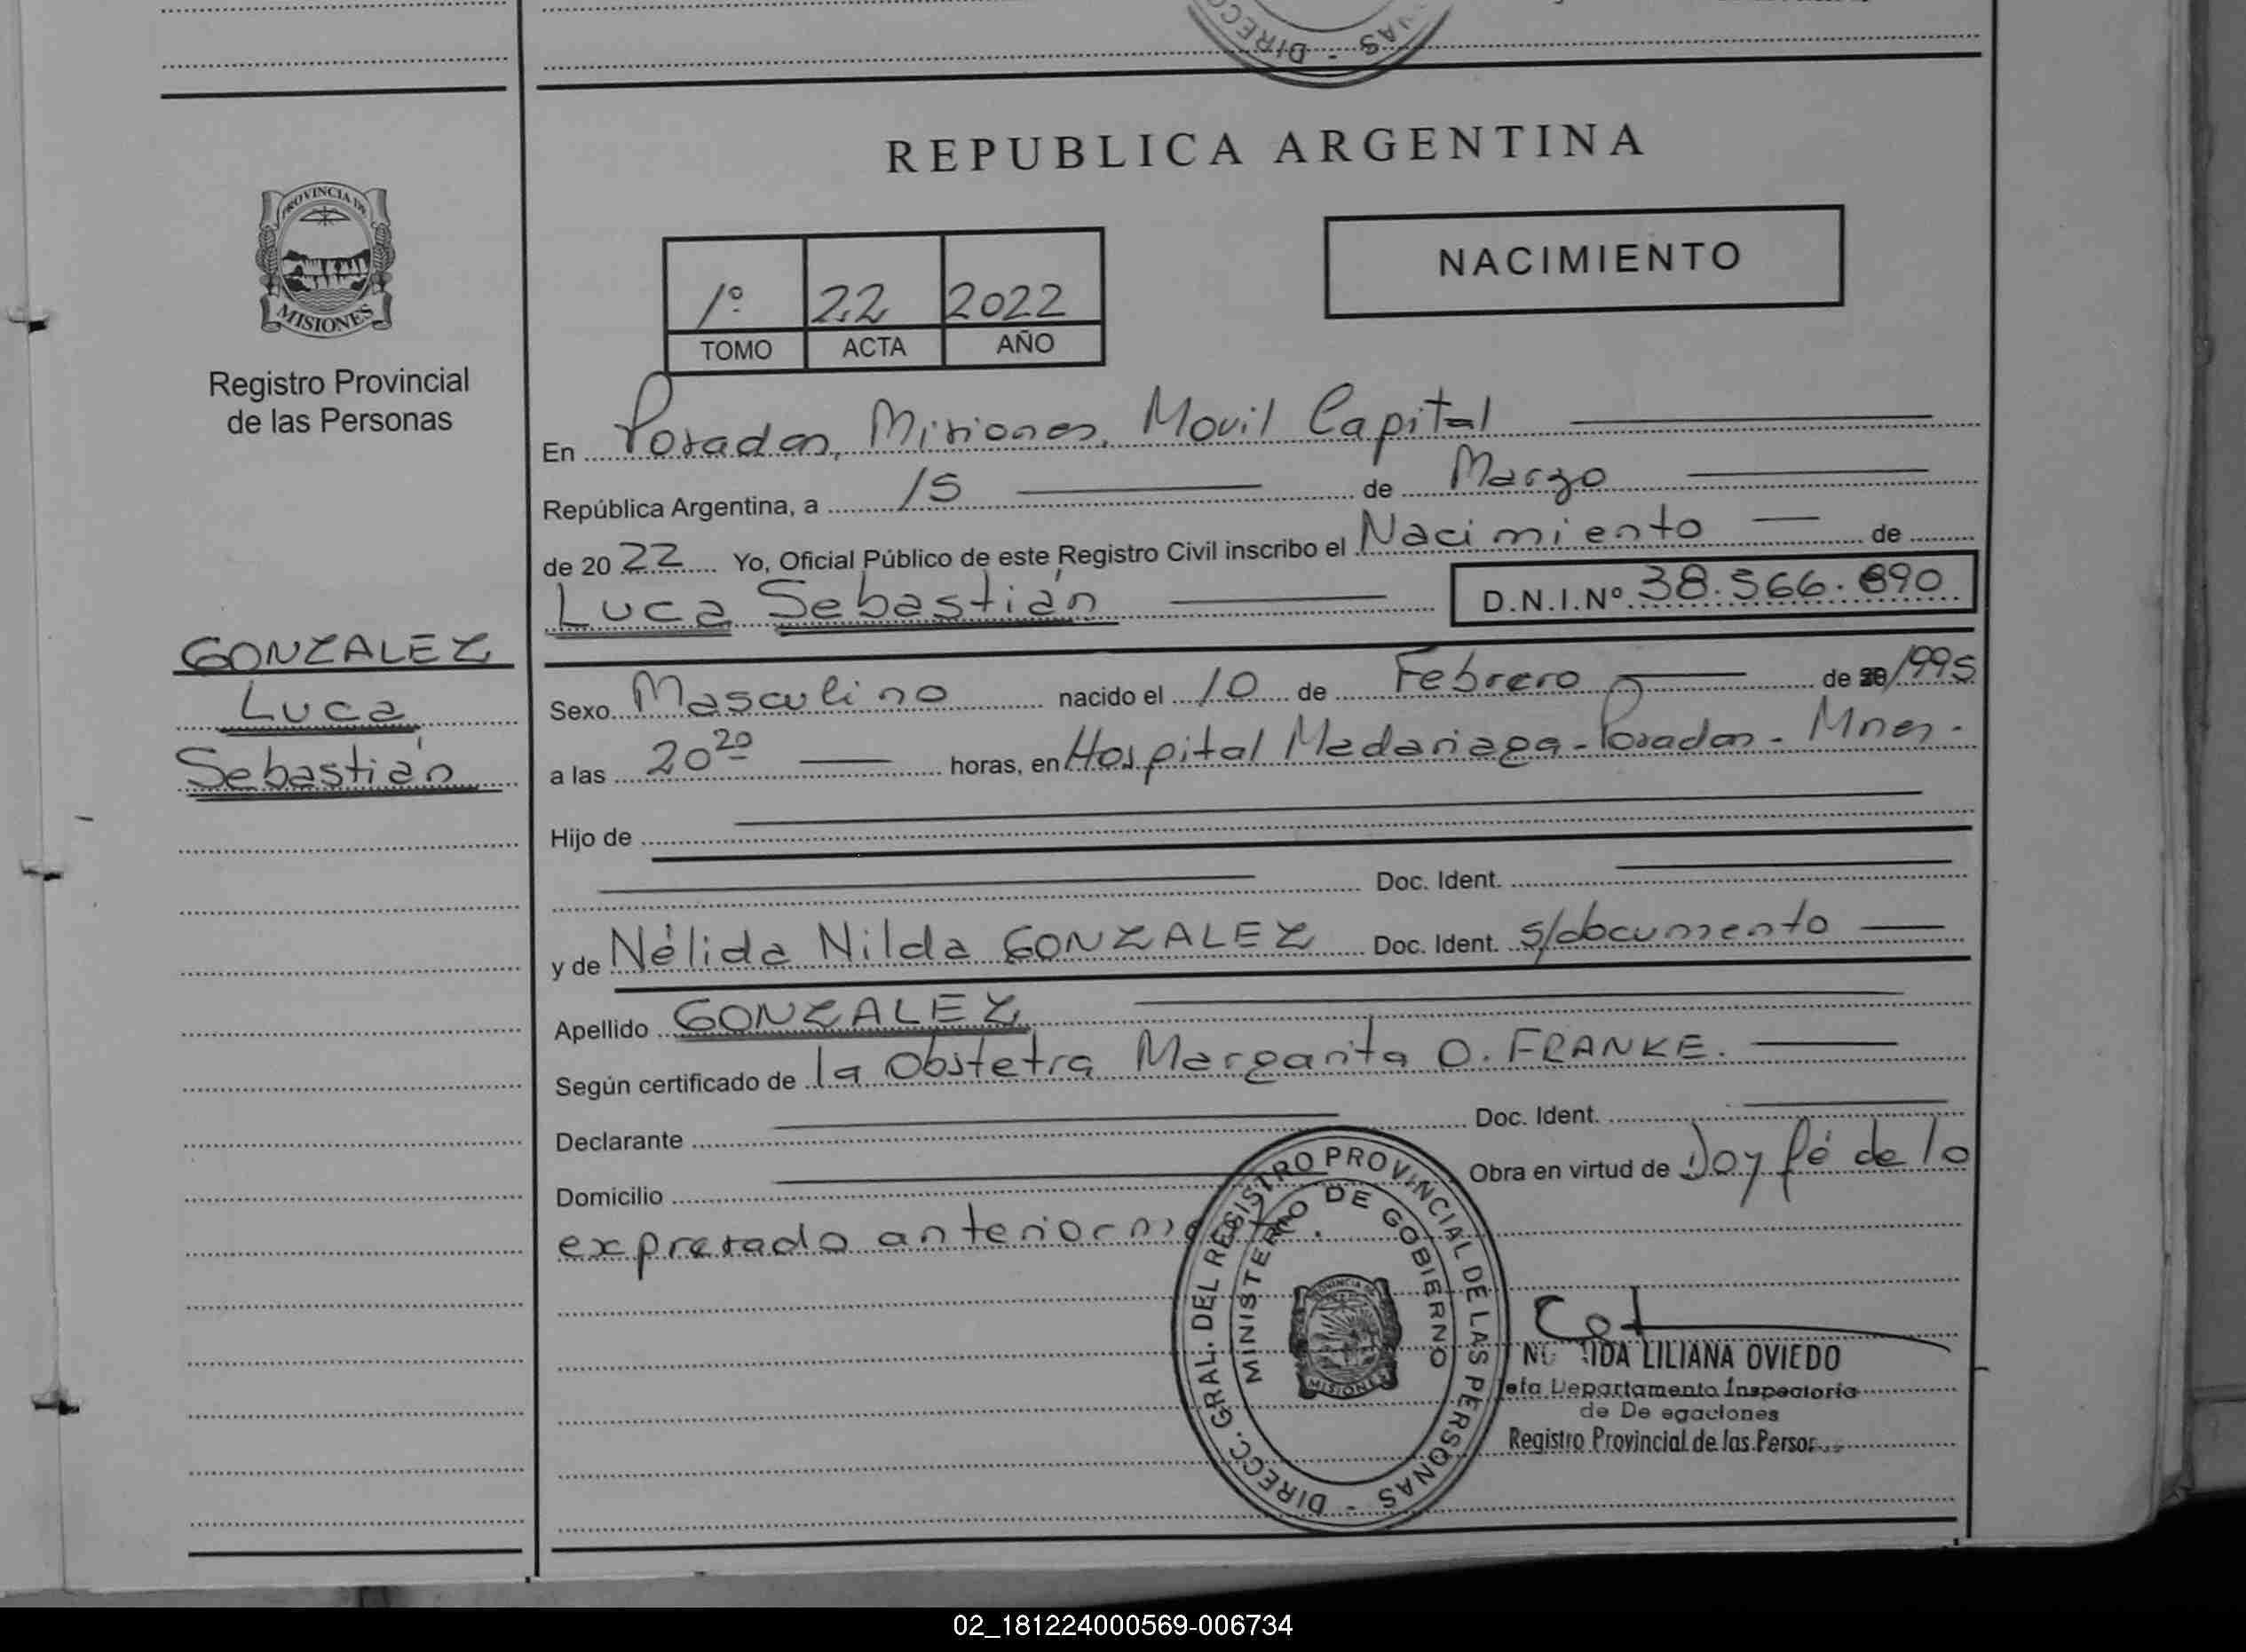 REPUBLICA ARGENTINA
PROVINCIA DE
MISIONES
Registro Provincial
de las Personas
NACIMIENTO
1º 22 2022
TOMO ACTA AÑO
En Posadas, Misiones, Movil Capital
República Argentina, a 15 de Marzo
de 2022 Yo, Oficial Público de este Registro Civil inscribo el Nacimiento de
Luca Sebastián D.N.I.Nº 38.566.890
GONZALEZ
Luca
Sebastián
Sexo Masculino nacido el 10 de Febrero de 1995
a las 20 20 horas, en Hospital Madariaga - Posadas - Mnes.
Hijo de
Doc. Ident.
y de Nélida Nilda GONZALEZ Doc. Ident. s/documento
Apellido GONZALEZ
Según certificado de la Obstetra Margarita O. FRANKE.
Declarante Doc. Ident.
Domicilio Obra en virtud de Doy fé de lo
expresado
DIRECC. GRAL. DEL REGISTRO PROVINCIAL DE LAS PERSONAS -
MINISTERIO DE GOBIERNO
PROVINCIA DE
MISIONES
LILIANA OVIEDO
Departamento Inspectoria
de
Registro Provincial de las
02_181224000569-006734